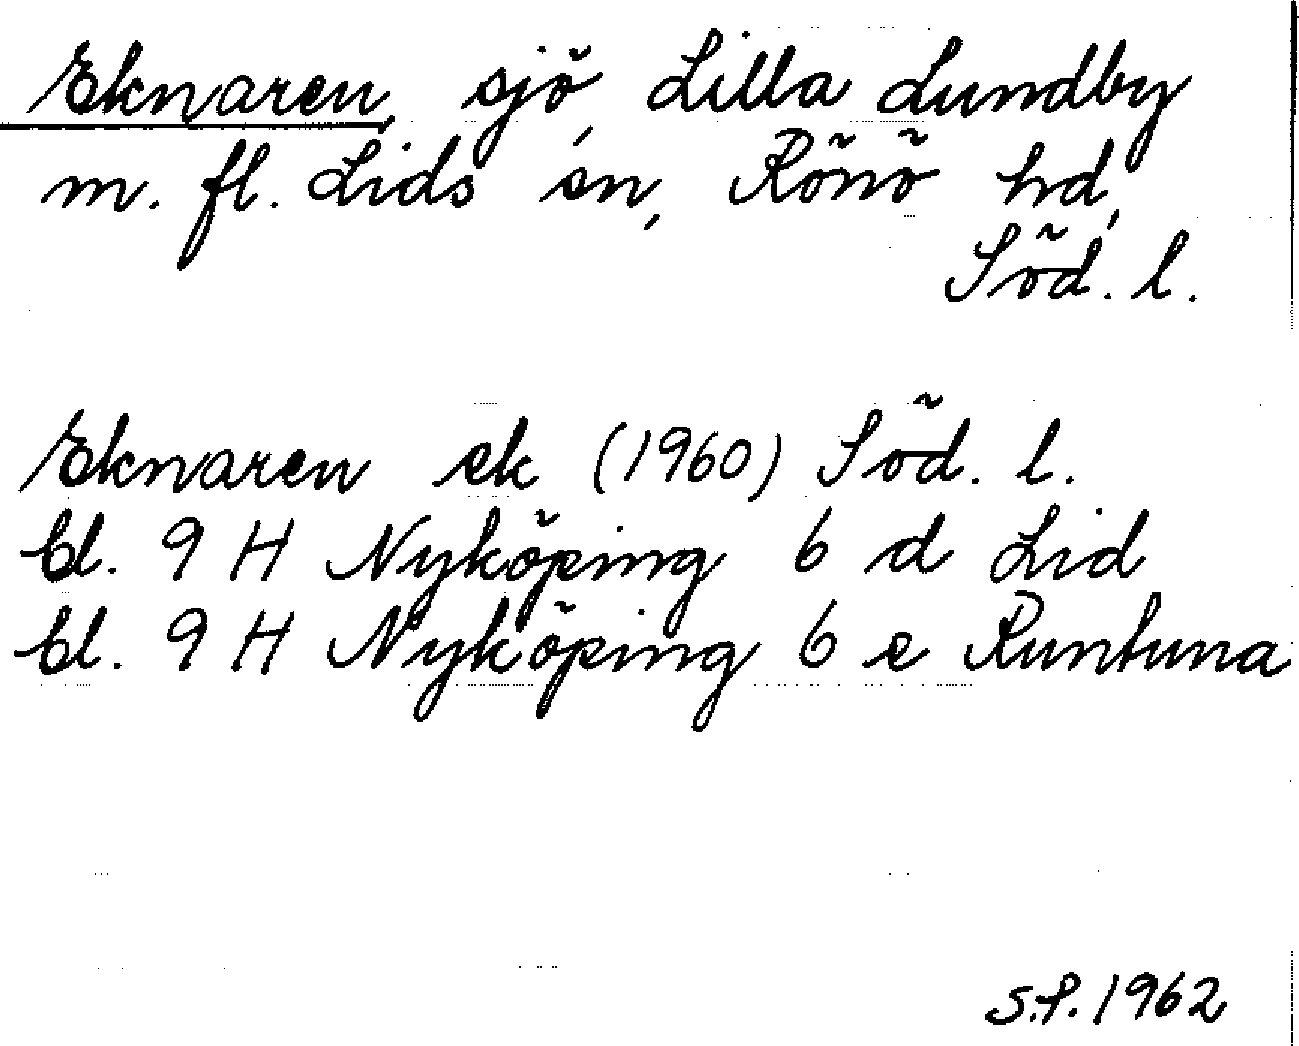 Eknaren, sjö, Lilla Lundby
m. fl. Lids sn, Rönö hd,
Söd. l.
Eknaren ek (1960) Söd. l.
bl. 9 H Nyköping 6 d Lid
bl. 9 H Nyköping 6 e Runtuna
S.P. 1962